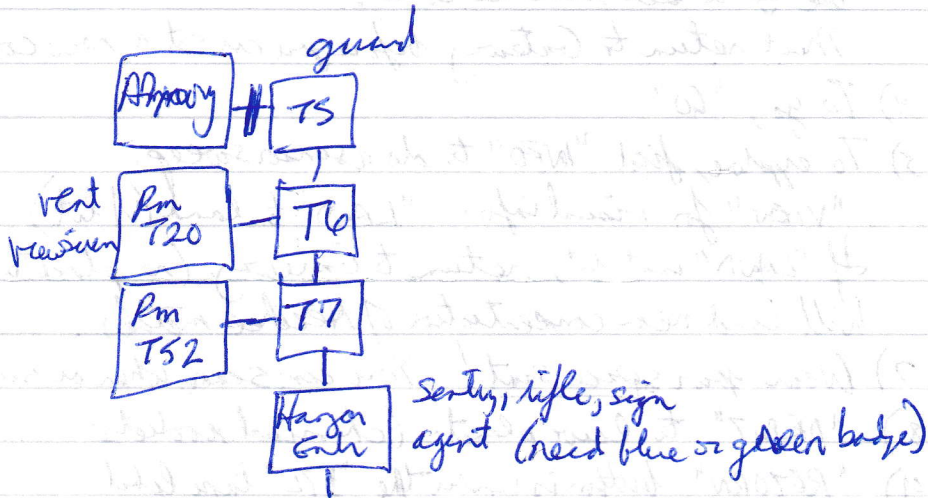 guard
Armory T5
vent
viewscreen
Rm
T20
T6
Rm
T52
T7
Hangar
Entr
sentry, rifle, sign
agent (need blue or green badge)